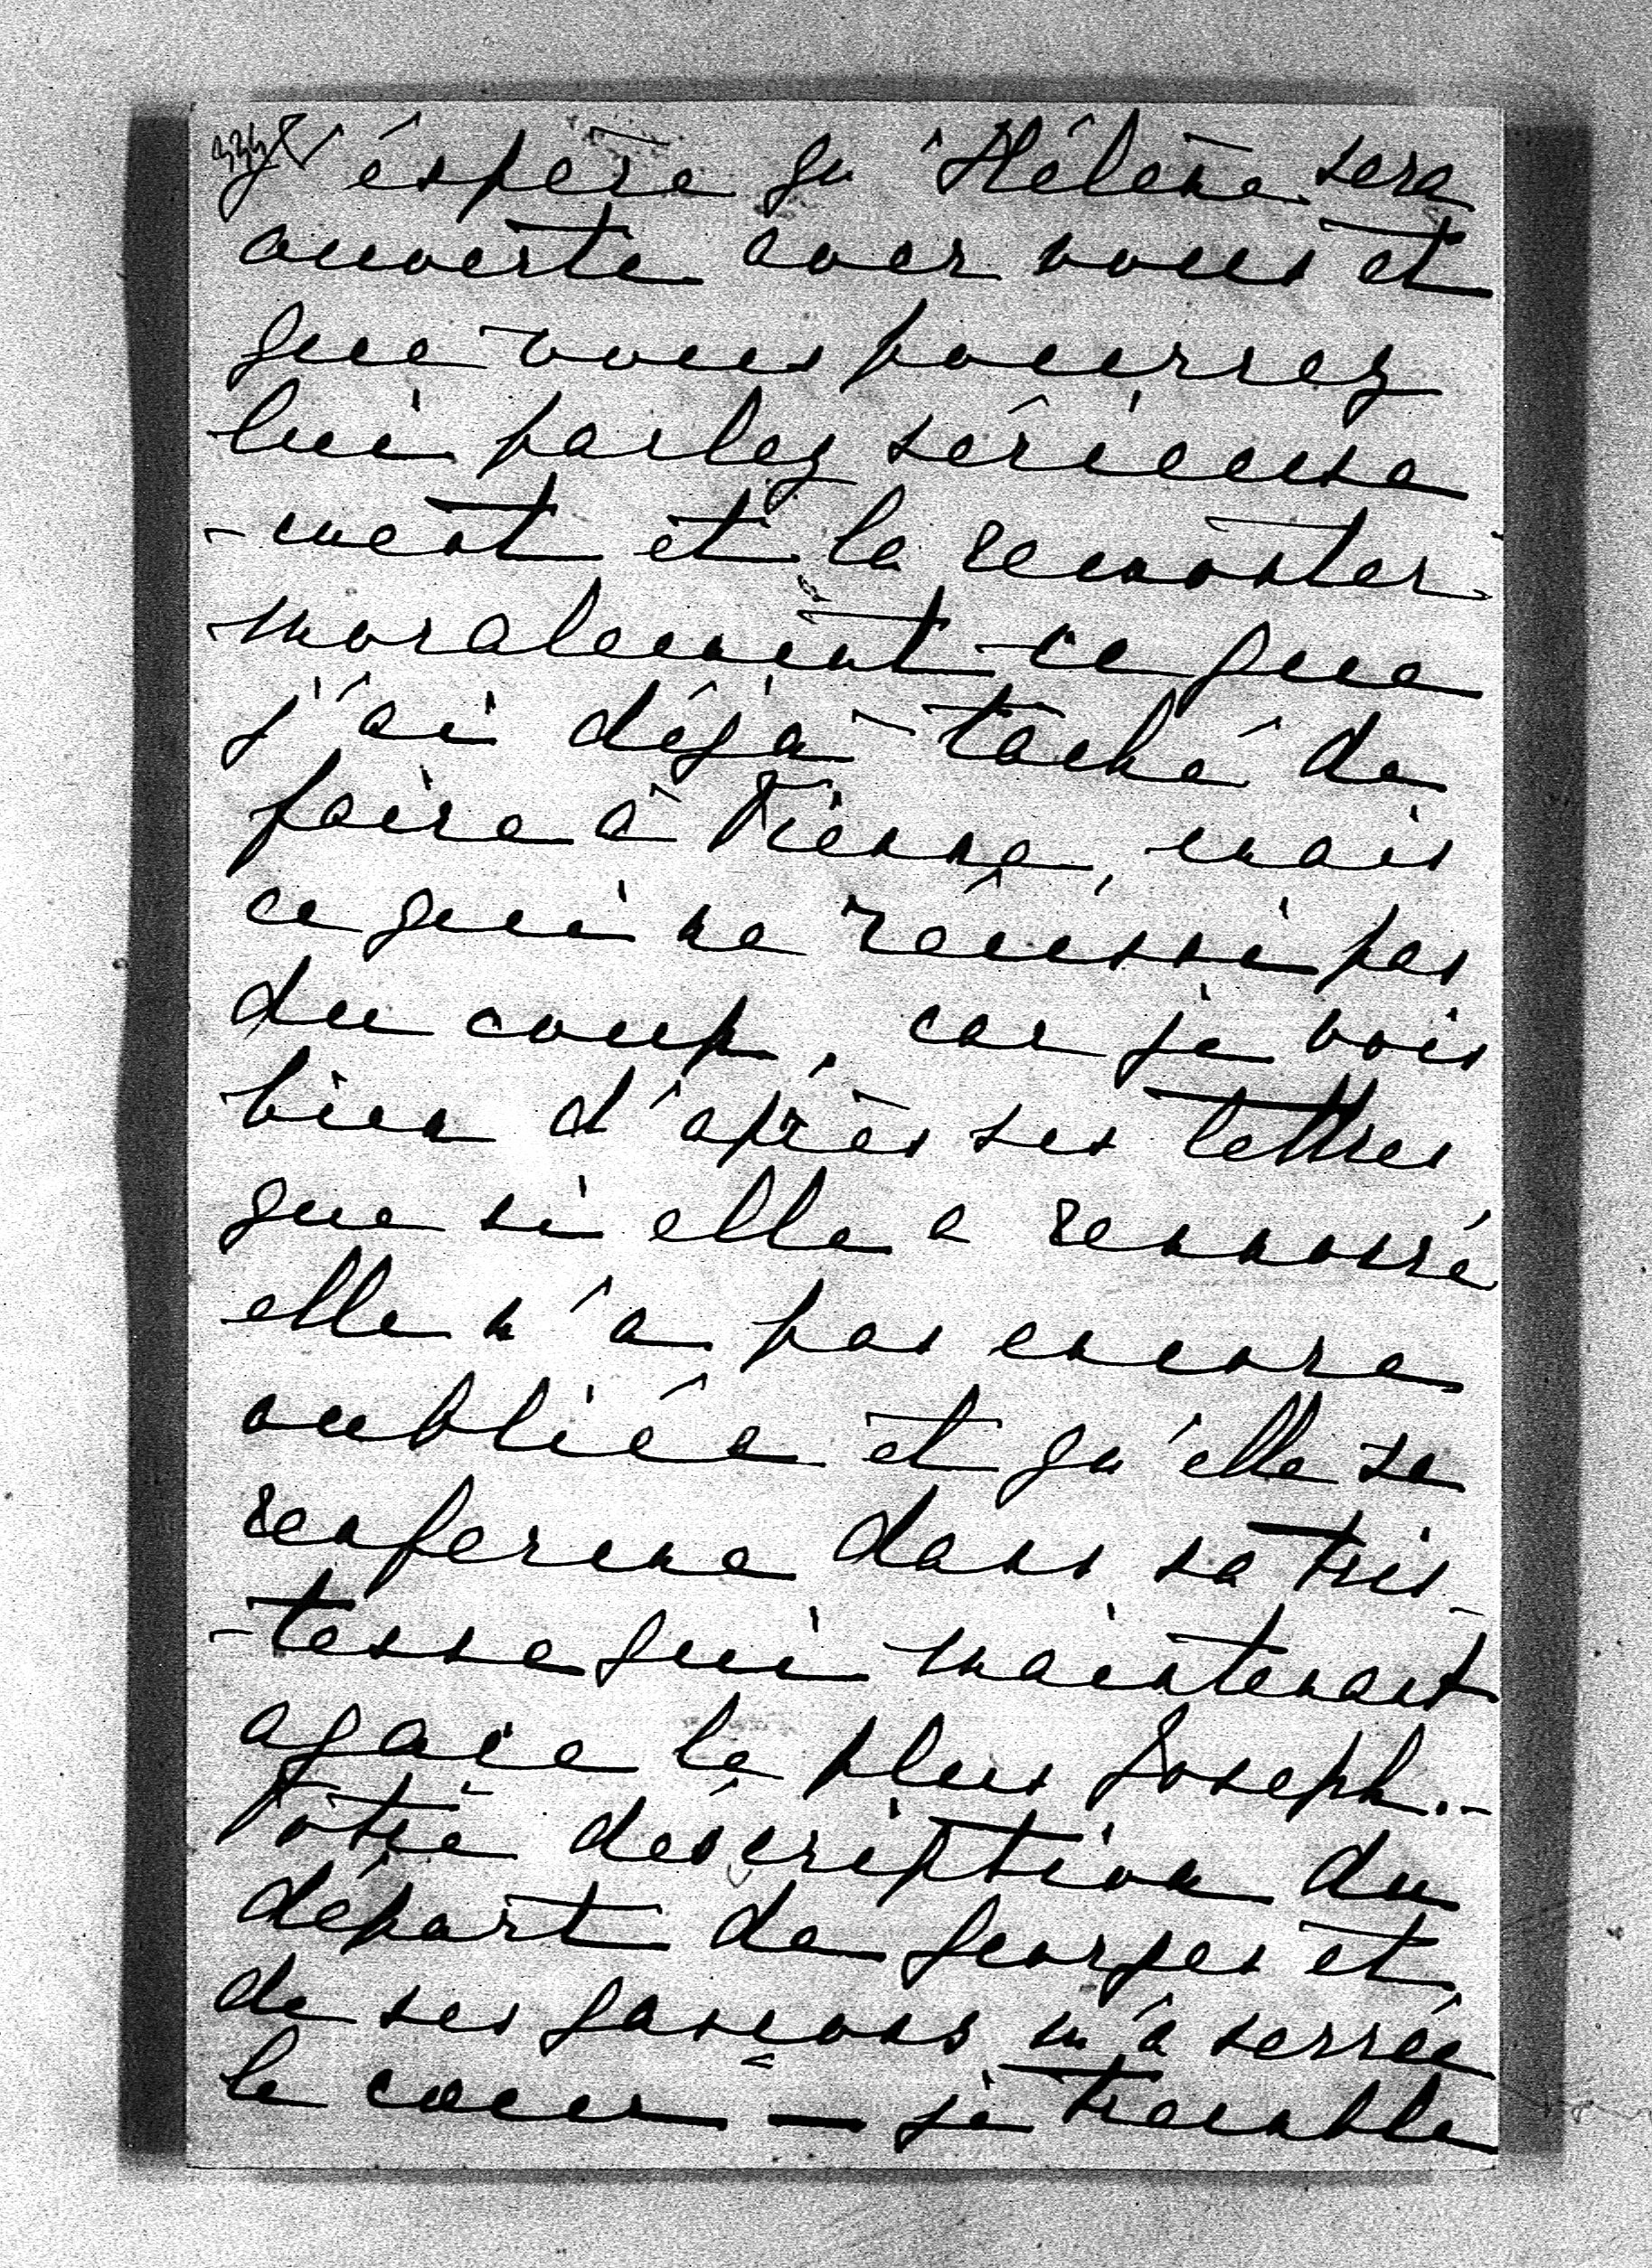 J'éspère qu'Hélène sera
ouverte avec vous et
que vous pourrez
lui parlez sérieuse
-ment et la remonter
moralement - ce que
j'ai déjà tâché de
faire à Vienne, mais
ce qui ne réussi pas
du coup, car je vois
bien d'après ses lettres
que si elle a
elle n'a pas encore
oubliée et qu'elle se
renferme dans sa tris-
-tesse qui maintenant
agace le plus Joseph.-
Votre déscription du
départ de Georges et
de ses garçons m'a serrée
le coeur — je tremble